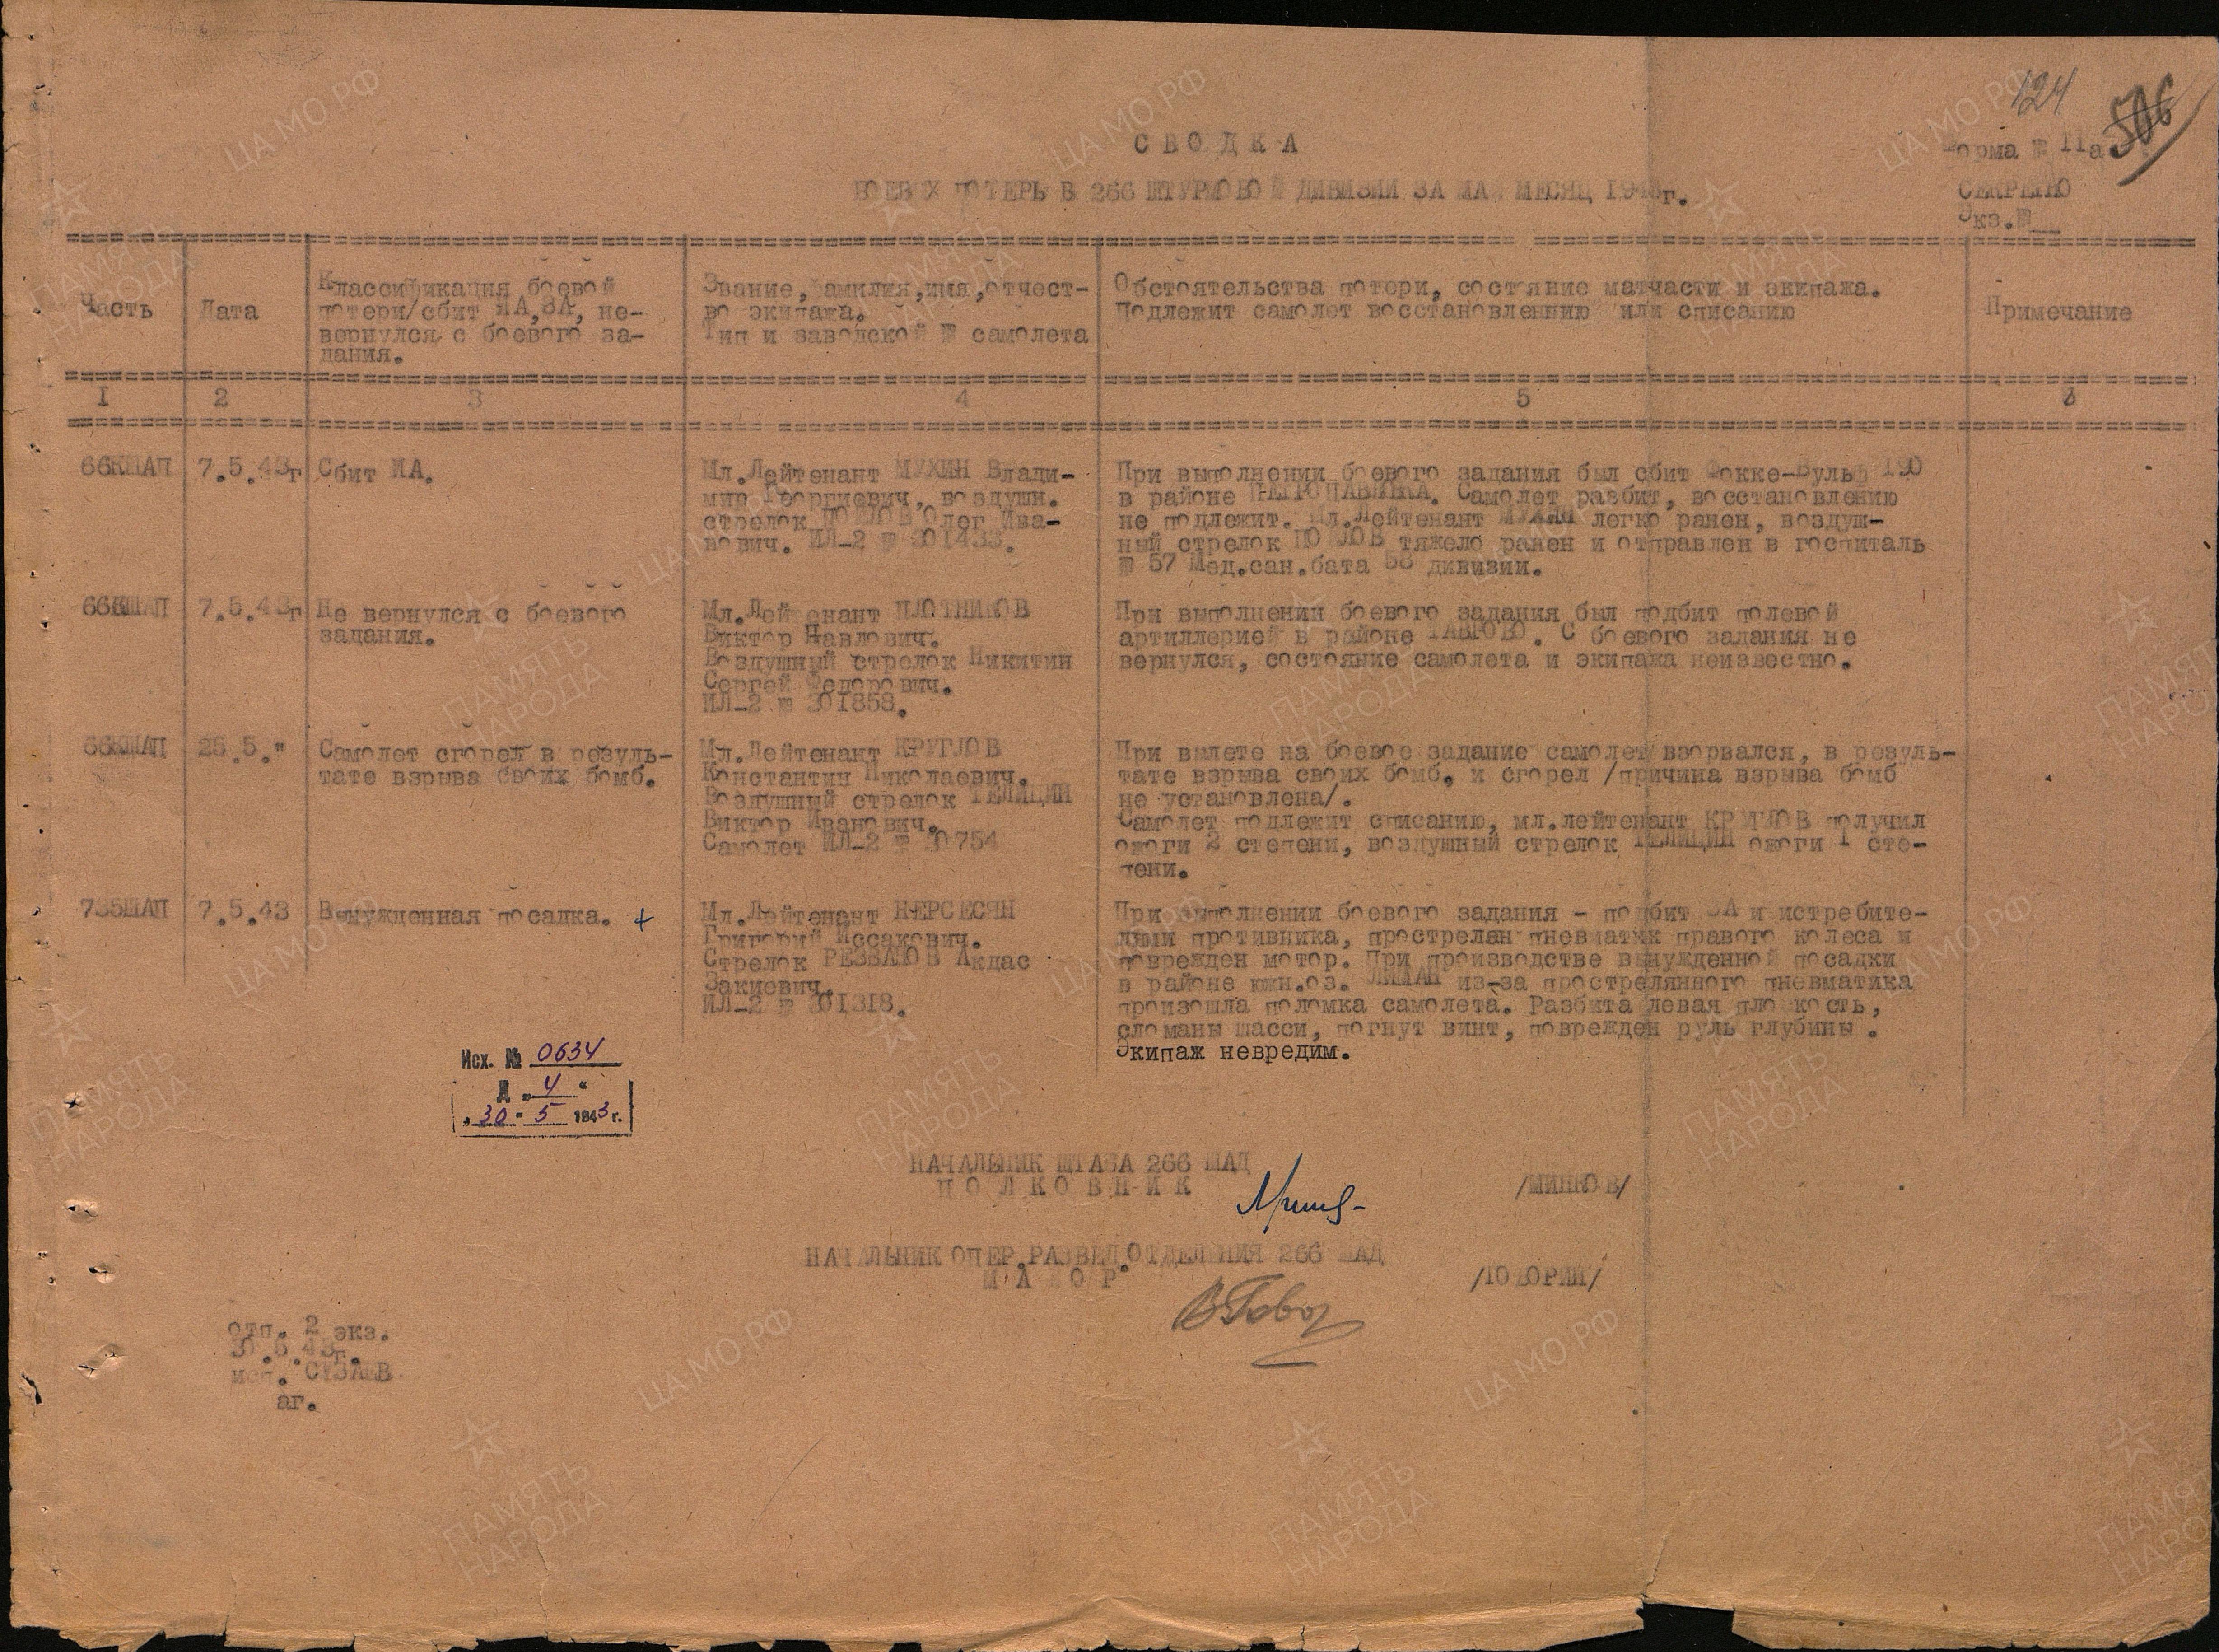 124
506
СВОДКА
Форма № 11а
БОЕВЫХ ПОТЕРЬ В 266 ШТУРМОВОЙ ДИВИЗИИ ЗА МАЙ МЕСЯЦ 1943г.
СЕКРЕТНО
Экз.№__
Часть
Дата
Классификация боевой
потери/сбит ИА,ЗА, не-
вернулся с боевого за-
дания.
Звание, фамилия,имя,отчест-
во экипажа.
Тип и заводской № самолета
Обстоятельства потери, состояние матчасти и экипажа.
Подлежит самолет восстановлению или списанию
Примечание
1 2 3 4 5 6
66КШАП 7.5.43г Сбит ИА.
Мл.Лейтенант МУХИН Влади-
мир Георгиевич, воздушн.
стрелок Олег Ива-
нович. ИЛ-2 № 301433.
При выполнении боевого задания был сбит Фокке-Вульф 190
в районе ПЕТРОПАВЛОВКА. Самолет разбит, восстановлению
не подлежит. Мл.Лейтенант МУХИН легко ранен, воздуш-
ный стрелок тяжело ранен и отправлен в госпиталь
№ 57 Мед.сан.бата 58 дивизии.
66КШАП 7.5.43г Не вернулся с боевого
задания.
Мл.Лейтенант ПЛОТНИКОВ
Виктор Павлович.
Воздушный стрелок Никитин
Сергей Федорович.
ИЛ-2 № 301858.
При выполнении боевого задания был подбит полевой
артиллерией в районе . С боевого задания не
вернулся, состояние самолета и экипажа неизвестно.
66КШАП 25.5." Самолет сгорел в резуль-
тате взрыва своих бомб.
Мл.Лейтенант КРУГЛОВ
Константин Николаевич.
Воздушный стрелок ГЕЛИЦИН
Виктор Иванович.
Самолет ИЛ-2 № 30754
При вылете на боевое задание самолет взорвался, в резуль-
тате взрыва своих бомб, и сгорел /причина взрыва бомб
не установлена/.
Самолет подлежит списанию, мл.лейтенант КРУГЛОВ получил
ожоги 2 степени, воздушный стрелок ГЕЛИЦИН ожоги 1 сте-
пени.
735ШАП 7.5.43 Вынужденная посадка. +
Мл.Лейтенант НЕРСЕСЯН
Григорий Иссакович.
Стрелок РЕЗВАНОВ Акдас
Закиевич.
ИЛ-2 № 301318.
При выполнении боевого задания - подбит ЗА и истребите-
лями противника, прострелан пневматик правого колеса и
поврежден мотор. При производстве вынужденной посадки
в районе южн.оз. ЛИМАН из-за прострелянного пневматика
произошла поломка самолета. Разбита левая плоскость,
сломаны шасси, погнут винт, поврежден руль глубины.
Экипаж невредим.
Исх. № 0634
Д „ 4 "
„ 30 " 5 1943 г.
НАЧАЛЬНИК ШТАБА 266 ШАД
ПОЛКОВНИК /МИНКОВ/
НАЧАЛЬНИК ОПЕР.РАЗВЕД.ОТДЕЛЕНИЯ 266 ШАД
МАЙОР /ГОВОРИН/
отп. 2 экз.
30.5.43г.
исп.
аг.